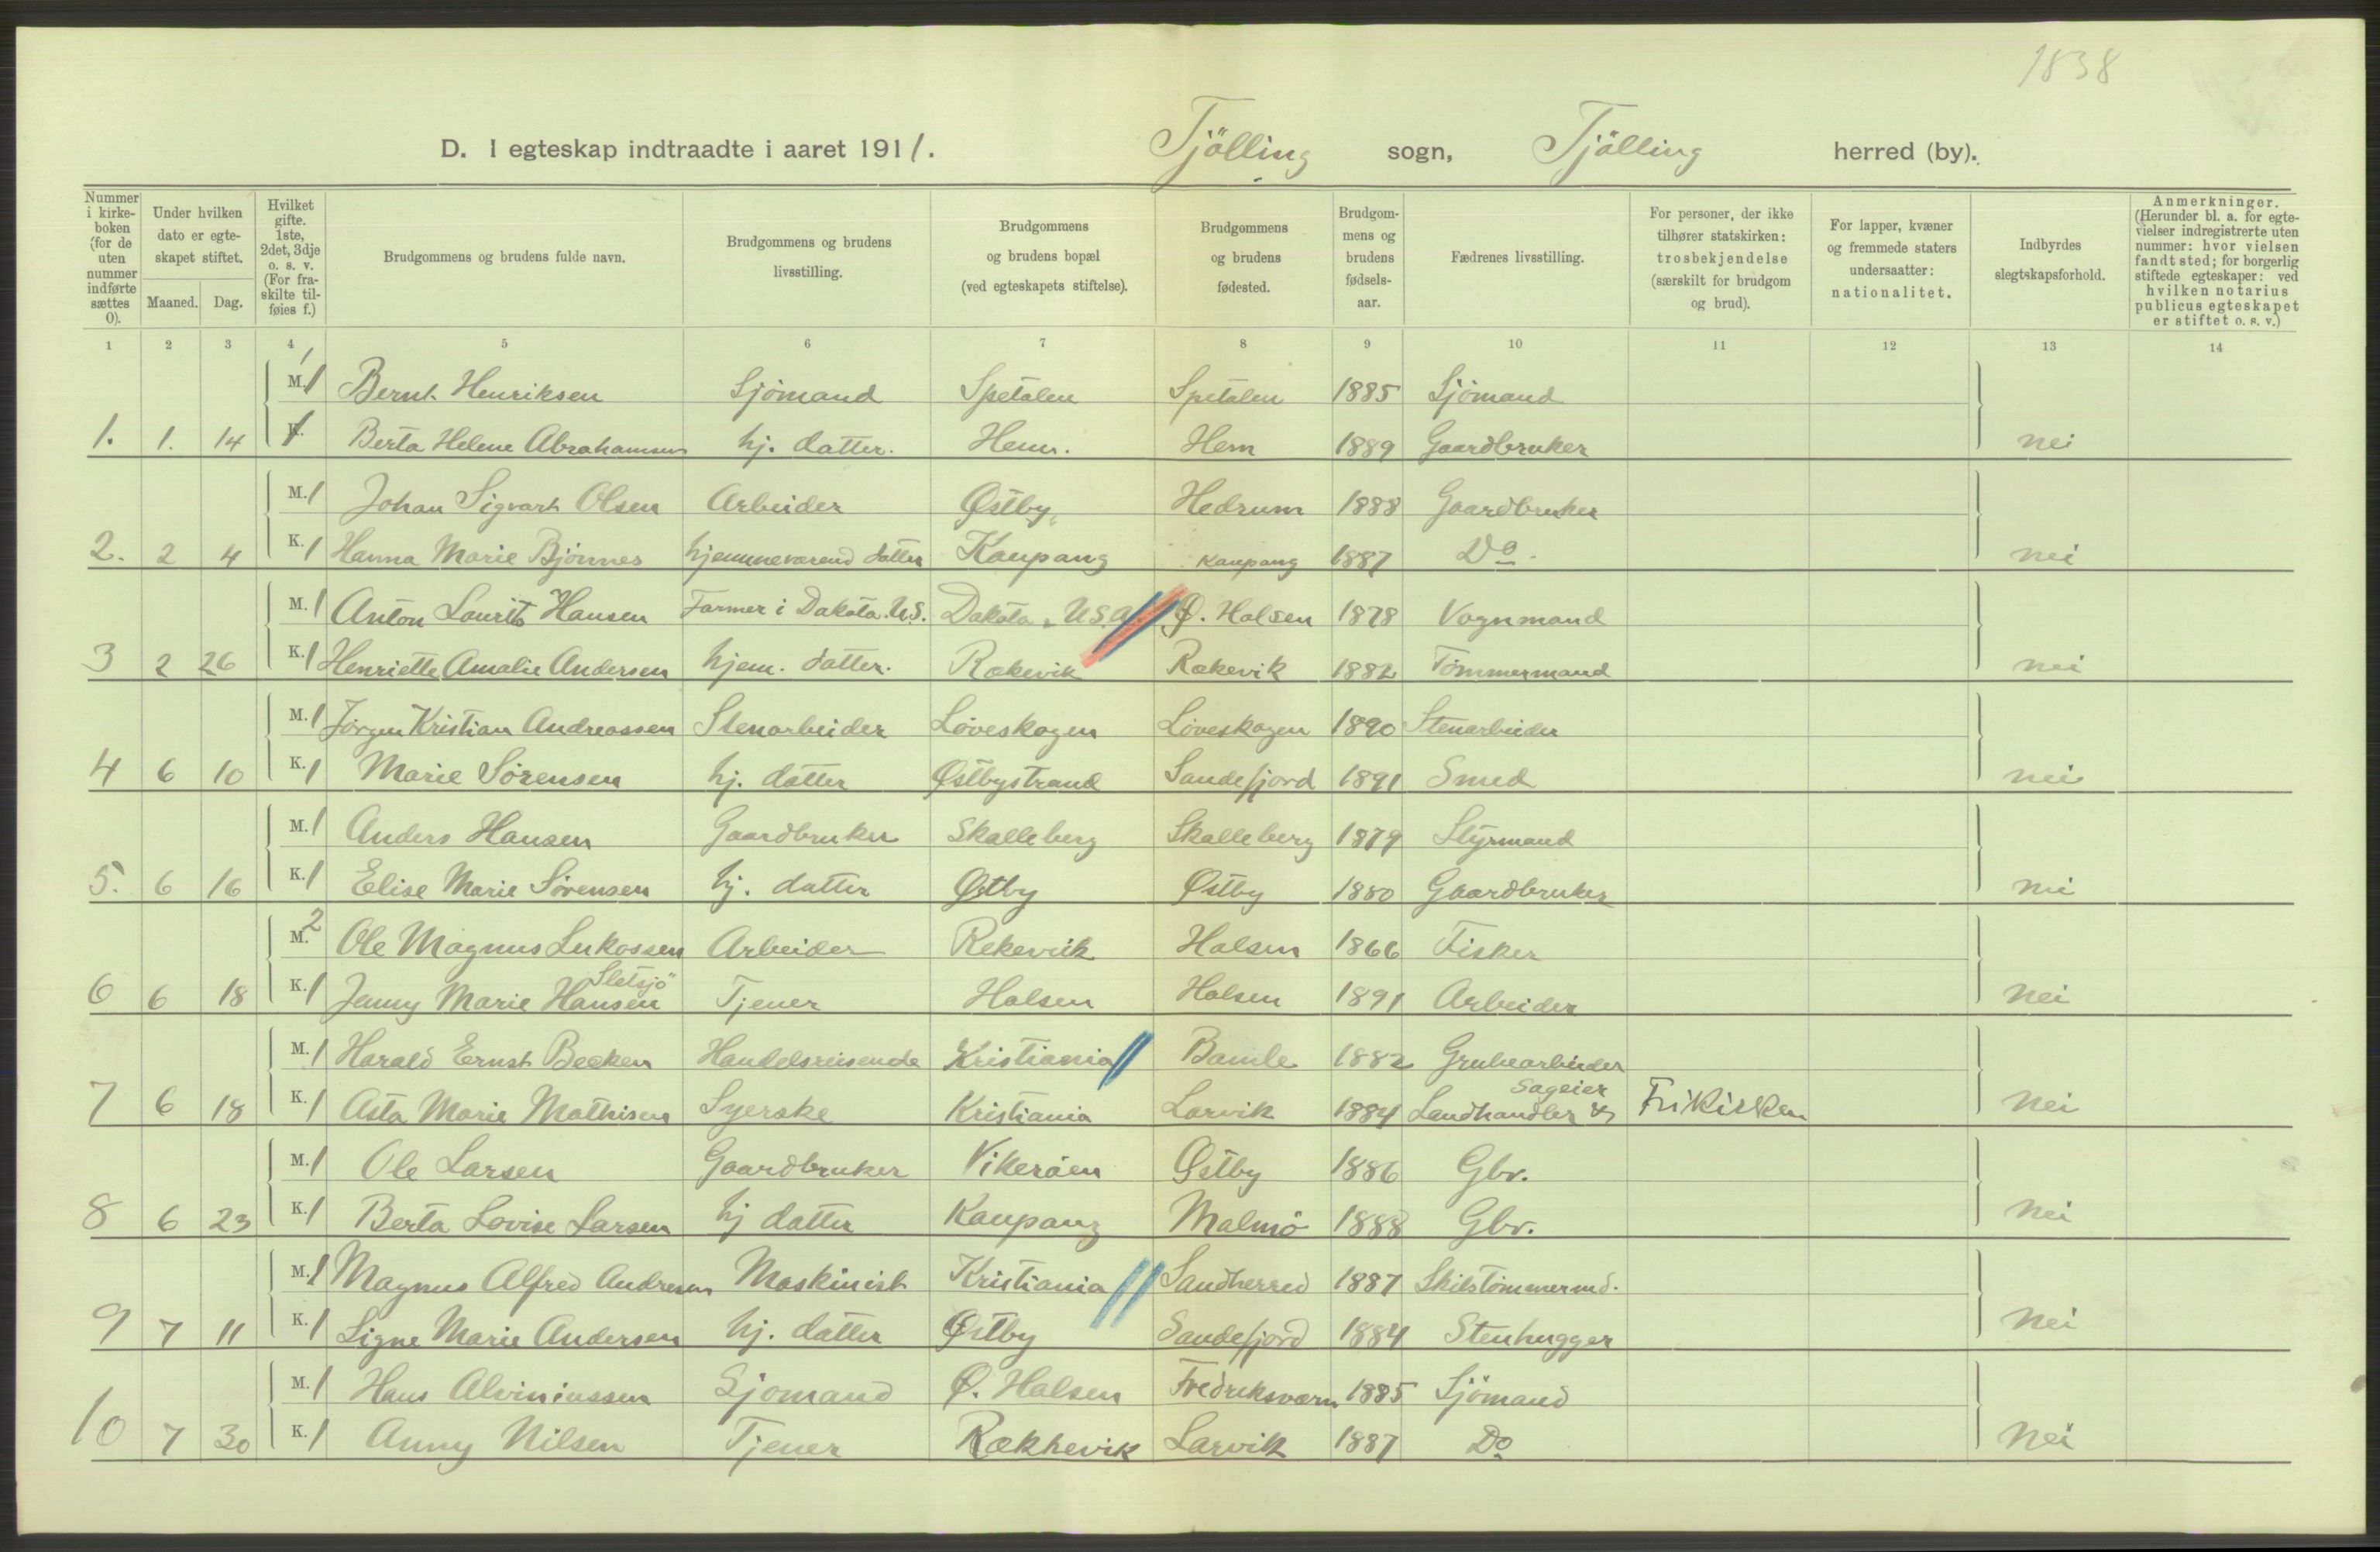 1838
D. I egteskap indtraadte i aaret 1911. Tjölling sogn, Tjölling herred (by).
Nummer i kirke-boken (for de uten nummer indførte sættes 0). Under hvilken dato er egte-skapet stiftet. Maaned. Dag. Hvilket gifte. 1ste, 2det, 3dje o. s. v. (For fra-skilte til-føies f.) Brudgommens og brudens fulde navn. Brudgommens og brudens livsstilling. Brudgommens og brudens bopæl (ved egteskapets stiftelse). Brudgommens og brudens fødested. Brudgom-mens og brudens fødsels-aar. Fædrenes livsstilling. For personer, der ikke tilhører statskirken: trosbekjendelse (særskilt for brudgom og brud). For lapper, kvæner og fremmede staters undersaatter: nationalitet. Indbyrdes slegtskapsforhold. Anmerkninger. (Herunder bl. a. for egte-vielser indregistrerte uten nummer: hvor vielsen fandt sted; for borgerlig stiftede egteskaper: ved hvilken notarius publicus egteskapet er stiftet o. s. v.)
1 2 3 4 5 6 7 8 9 10 11 12 13 14
M. 1 Bernt Henriksen Sjömand Spetalen Spetalen 1885 Sjömand
1. 1. 14 K. 1 Berta Helene Abrahamsen hj. datter. Hem. Hem 1889 Gaardbruker nei
M. 1 Johan Sigvart Olsen Arbeider Østby Hedrum 1888 Gaardbruker
2. 2 4 K. 1 Hanna Marie Bjönnes hjemmeværend datter Kaupang Kaupang 1887 Do nei
M. 1 Anton Laurits Hansen Farmer i Dakota U.S. Dakota U.S.A. Ø. Halsen 1878 Vognmand
3 2 26 K. 1 Henriette Amalie Andersen hjem. datter. Rækevik Rækevik 1882 Tömmermand nei
M. 1 Jörgen Kristian Andreassen Stenarbeider Löveskogen Löveskogen 1890 Stenarbeider
4 6 10 K. 1 Marie Sörensen hj. datter Østbystrand Sandefjord 1891 Smed nei
M. 1 Anders Hansen Gaardbruker Skalleberg Skalleberg 1879 Styrmand
5. 6 16 K. 1 Elise Marie Sörensen hj. datter Østby Østby 1880 Gaardbruker nei
M. 2 Ole Magnus Lukassen Arbeider Rekevik Halsen 1866 Fisker
6 6 18 K. 1 Jenny Marie Hansen Sletsjö Tjener Halsen Halsen 1891 Arbeider nei
M. 1 Harald Ernst Becken Handelsreisende Kristiania Bamle 1882 Grubearbeider
7 6 18 K. 1 Asta Marie Mathisen Syerske Kristiania Larvik 1884 Landhandler & Sageier Frikirken nei
M. 1 Ole Larsen Gaardbruker Vikeröen Østby 1886 Gbr.
8 6 23 K. 1 Berta Lovise Larsen hj datter Kaupang Malmö 1888 Gbr. nei
M. 1 Magnus Alfred Andresen Maskinist Kristiania Sandherred 1887 Skibstömmermd.
9 7 11 K. 1 Signe Marie Andersen hj. datter Østby Sandefjord 1884 Stenhugger nei
M. 1 Hans Alviniussen Sjömand Ø. Halsen Fredriksværn 1885 Sjömand
10 7 30 K. 1 Anny Nilsen Tjener Rækkevik Larvik 1887 Do nei